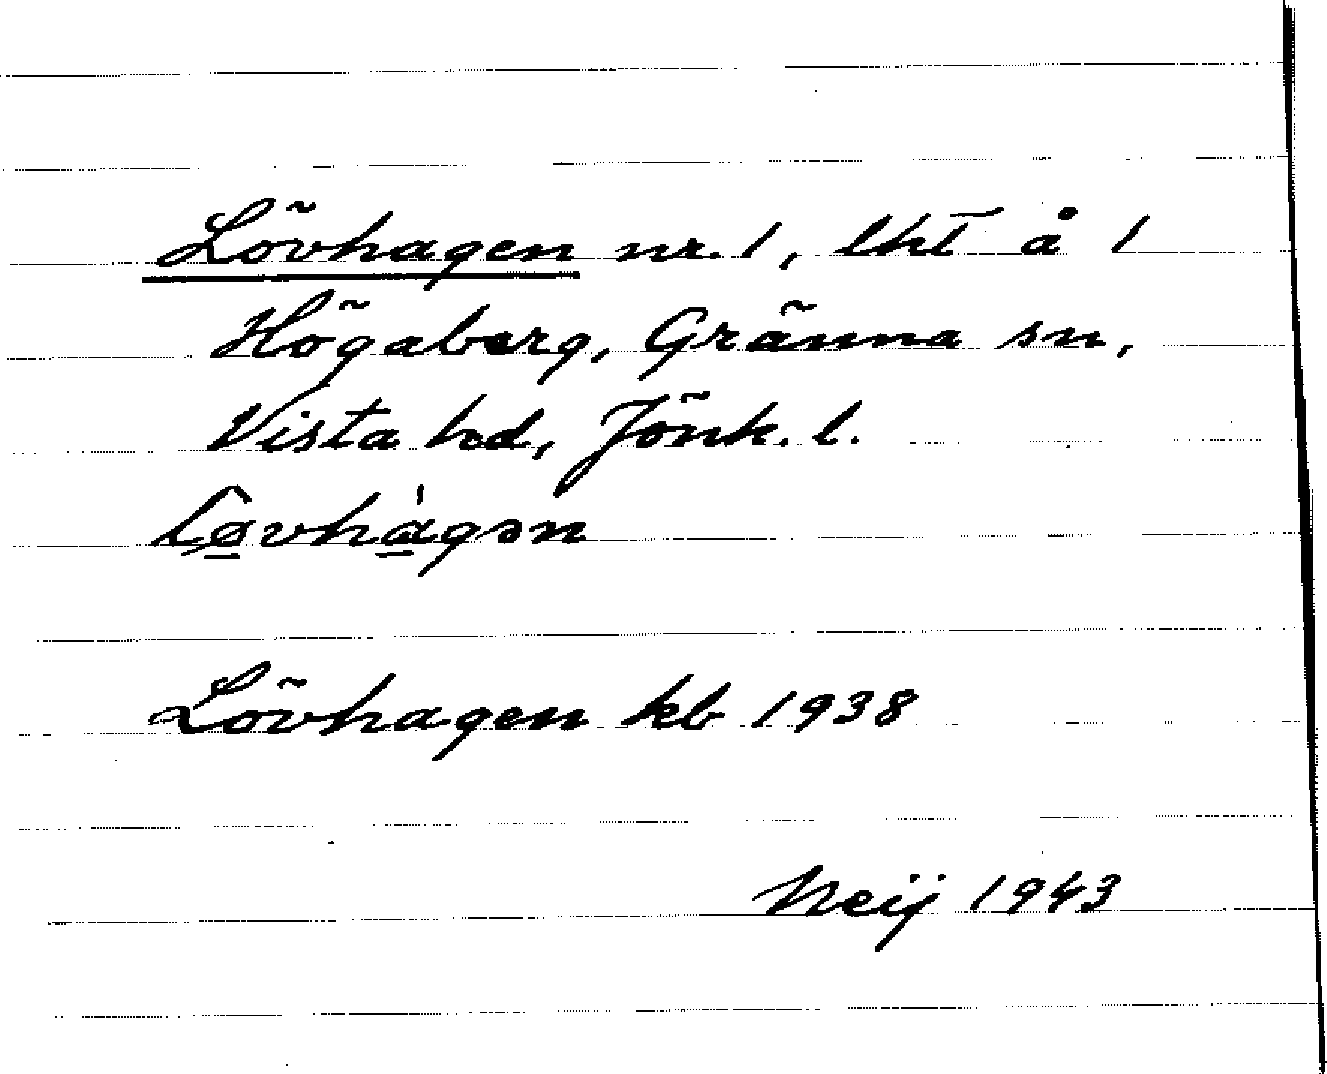 Lövhagen nr. 1, lht å 1
Högaberg, Gränna sn,
Vista hd, Jönk. l.
Lø̲vhà̲gən
Lövhagen kb 1938
Neij 1943